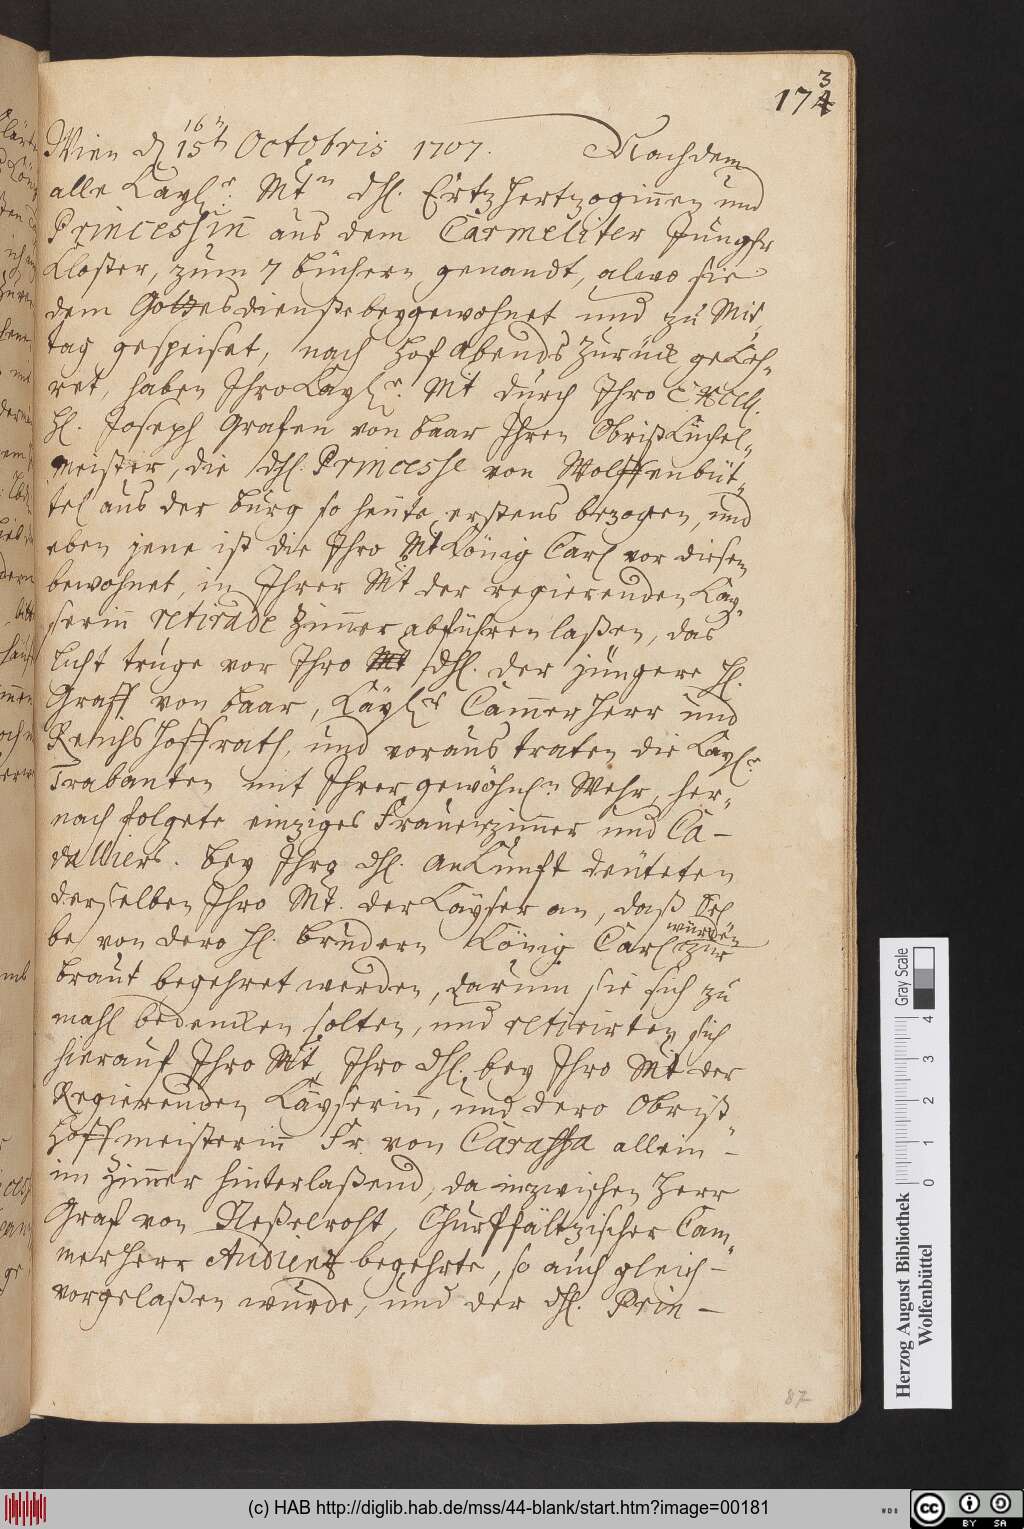 173
Wien d 16n 15t Octobris 1707. Nachdem
alle Kayl.r Mtn dhl. Ertzhertzoginnen und
Princessin aus dem Carmeliter Jungfr
Kloster, zum 7 büchern genandt, alwo sie
dem Gottesdienste beygewohnet und zu Mit„
tag gespeiset, nach Hof Abends zurück gekeh„
ret, haben Ihro Kayl.r Mt durch Ihro Excell.
Hl. Joseph Grafen von baar Ihren Obrist Küchel„
meister, die dhl. Princesse von Wolffenbüt„
tel aus der burg so heute erstens bezogen, und
eben jene ist die Ihro Mt König Carl vor diesem
bewohnet, in Ihrer Mt der regierenden Kay„
serinn retirade Zimmer abführen laßen, das
licht truge vor Ihro dhl. der jüngere Hl.
Graff von baar, Käyl.r Cammerherr und
Reichshoffrath, und voraus traten die Kayl.r
Trabanten mit Ihrer gewöhnl.n Wehr, her„
nach folgete einziges Frauenzimmer und Ca-
valliers. bey Ihro dhl. Ankunft deuteten
derselben Ihro Mt. der Kayser an, daß Sel
be von dero Hl. brudern König Carl würden zur
braut begehret werden, darum sie sich zu
mahl bedencken solten, und retirirten sich
hierauf Ihro Mt, Ihro dhl. bey Ihro Mt der
Regierenden Kayserinn, und dero Obrist„
hoffmeisterinn Fr. von Caraffa allein-
im Zimmer hinterlaßend, da inzwischen Herr
Graf von Neßelroht, Churpfältzischer Cam„
merherr Audientz begehrte, so auch gleich-
vorgelaßen wurde, und der dhl. Prin-
87
Gray Scale
0 1 2 3 4
Herzog August Bibliothek
Wolfenbüttel
(c) HAB http://diglib.hab.de/mss/44-blank/start.htm?image=00181
WDB
cc BY SA